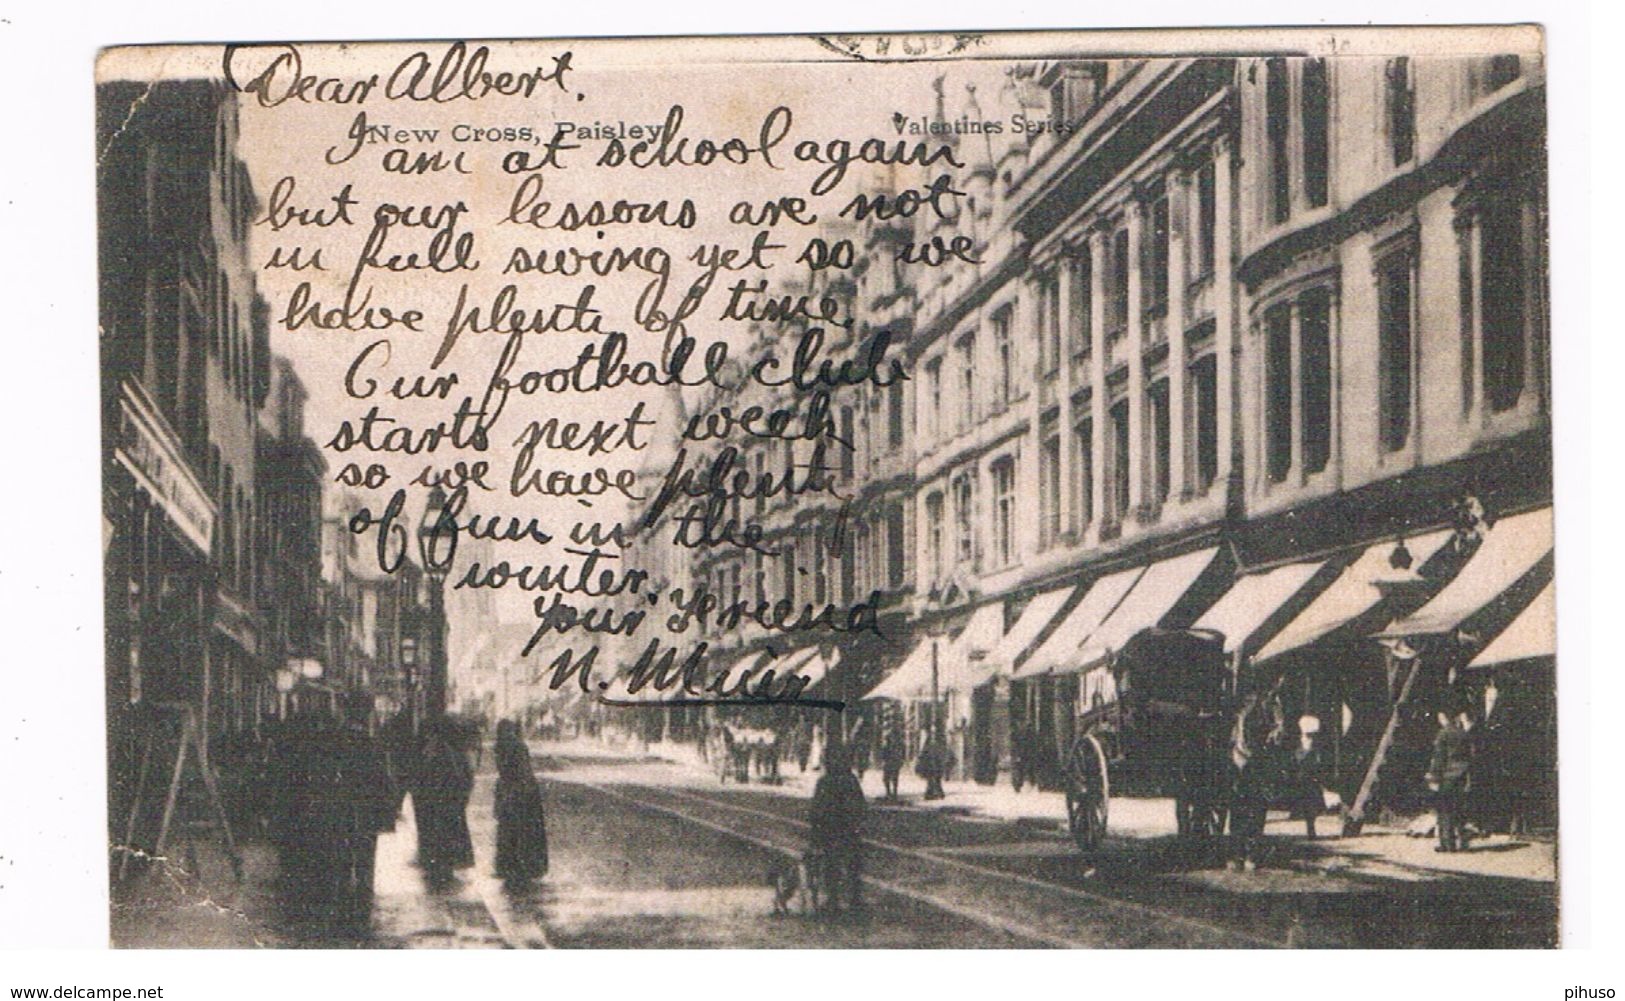 Dear Albert.
New Cross, Paisley
Valentines Series
I am at school again
but our lessons are not
in full swing yet so we
have plenty of time.
Our football club
starts next week
so we have plenty
of fun in the
winter.
Your Friend
N. Muir
www.delcampe.net
pihuso